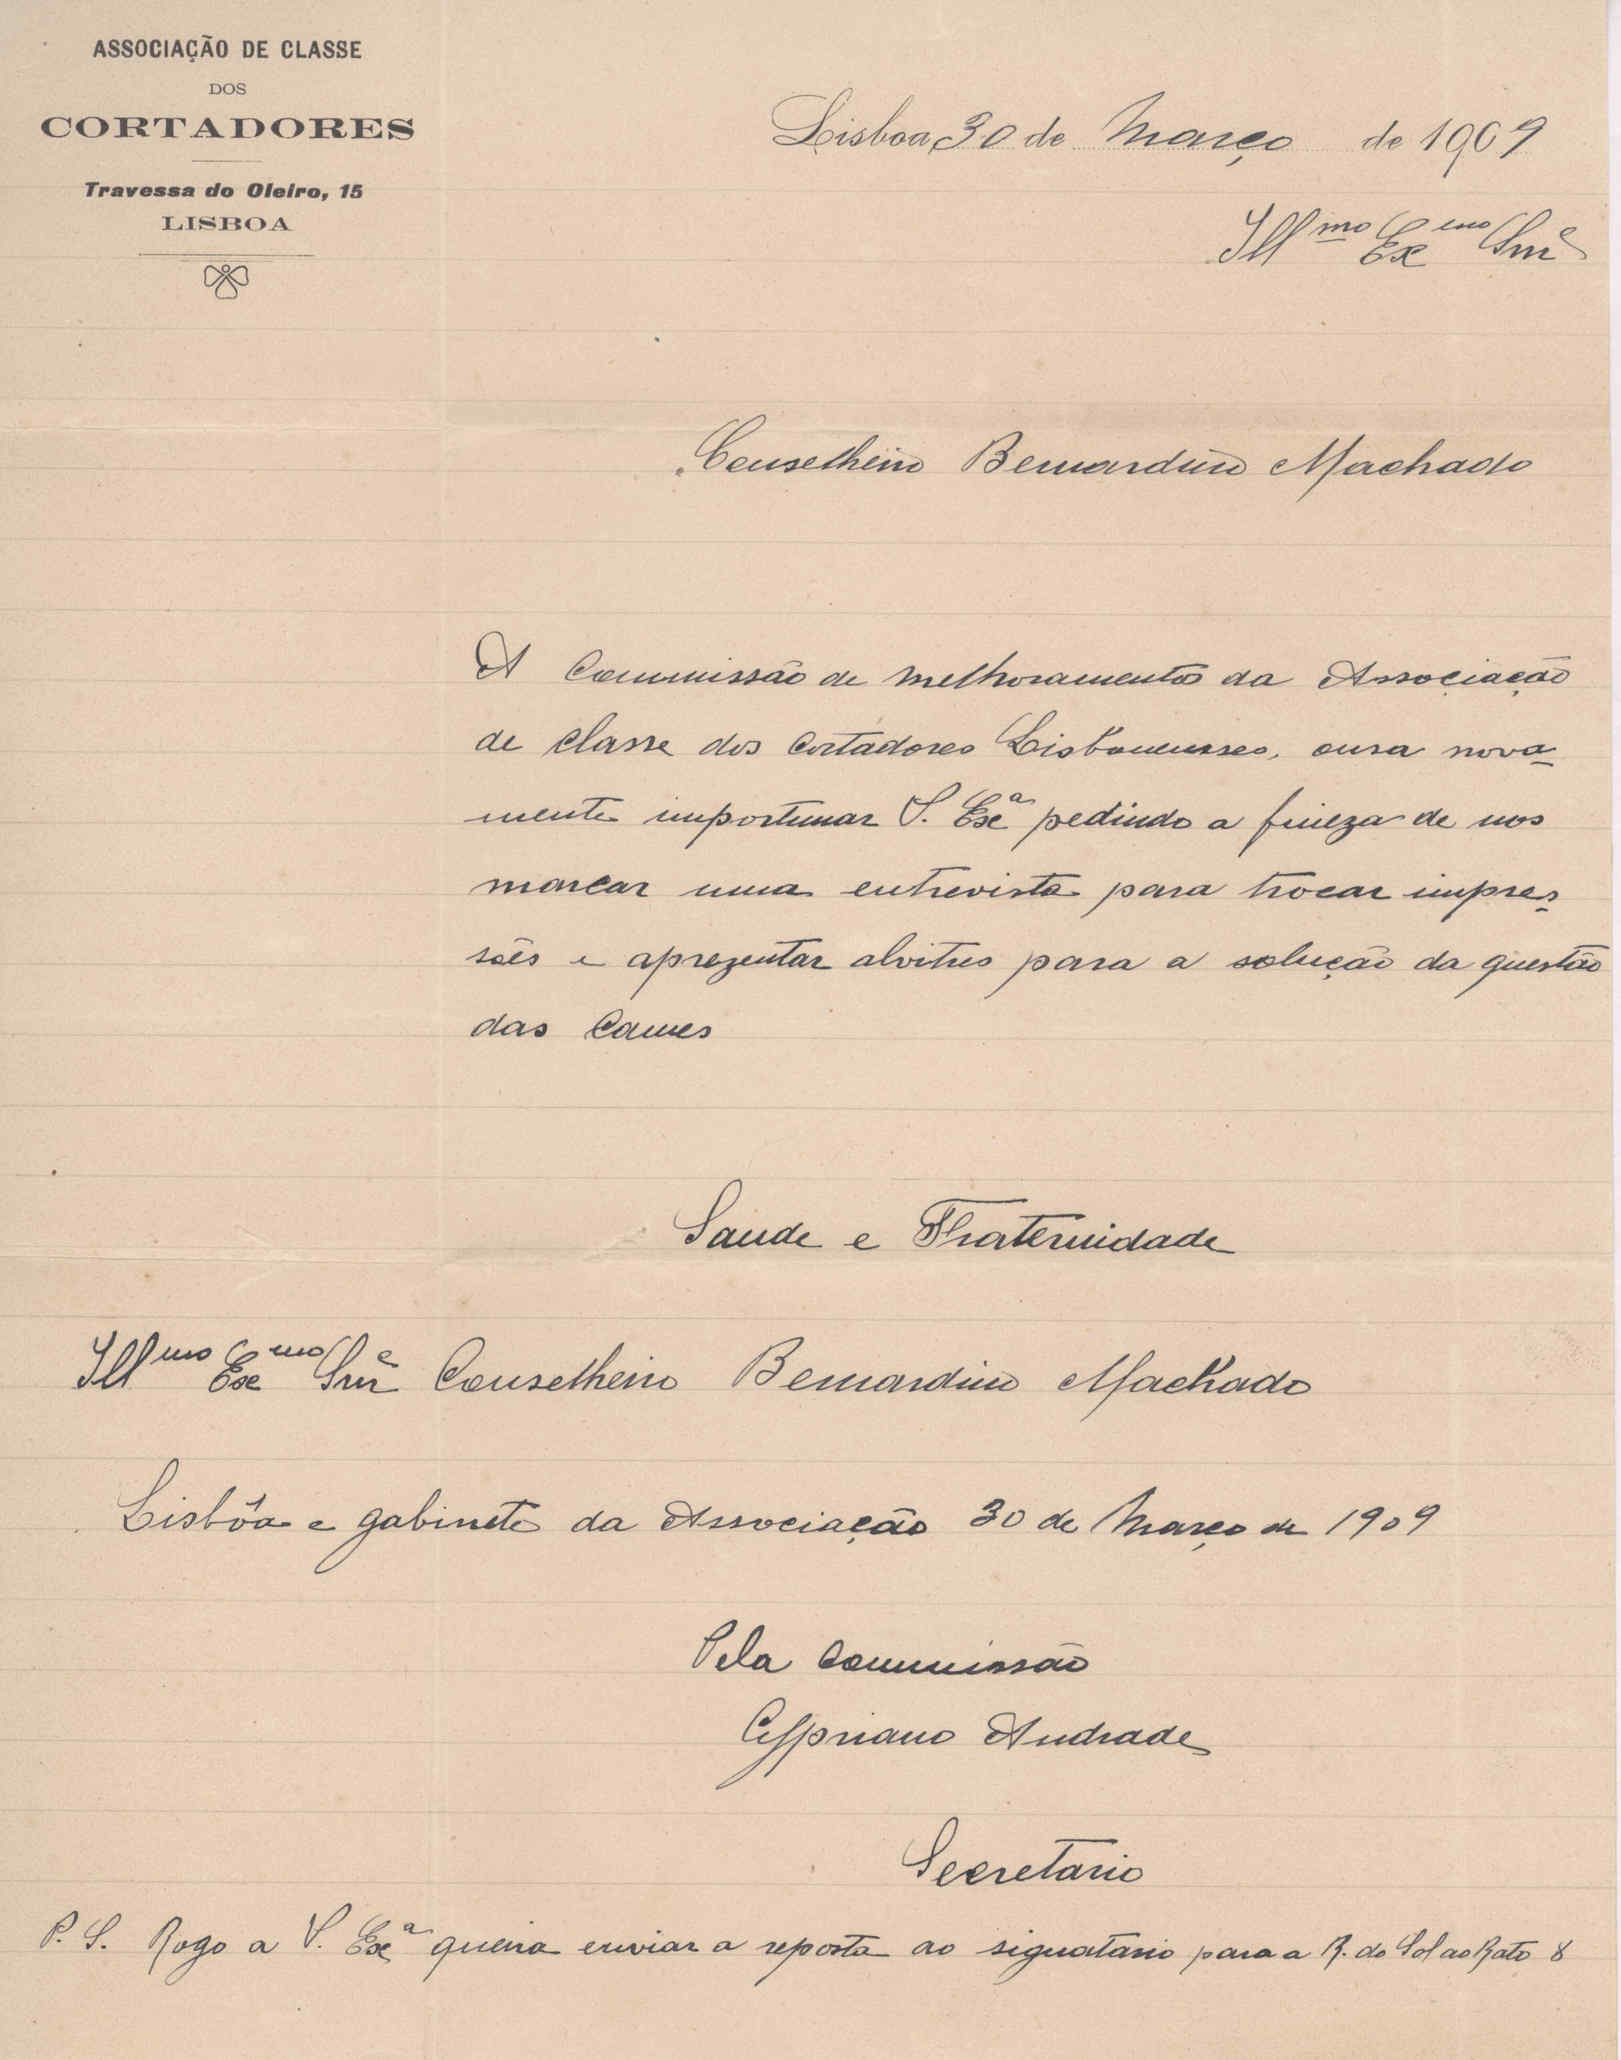 ASSOCIAÇÃO DE CLASSE
DOS
CORTADORES
Travessa do Oleiro, 15
LISBOA
Lisboa, 30 de Março de 1909
Illmo Exmo Snr
Conselheiro Bernardino Machado
A Commissão de melhoramentos da Associação
de classe dos cortadores Lisbonenses, ousa nova-
mente importunar V. Exª pedindo a fineza de nos
marcar uma entrevista para trocar impres-
sões e aprezentar alvitres para a solução da questão
das Carnes
Saude e Fraternidade
Illmo Exmo Snr Conselheiro Bernardino Machado
Lisbôa e gabinete da Associação 30 de Março de 1909
Pela Commissão
Cypriano Andrade
Secretario
P. S. Rogo a V. Exª queira enviar a reposta ao signatario para a R. do Sol ao Rato 8